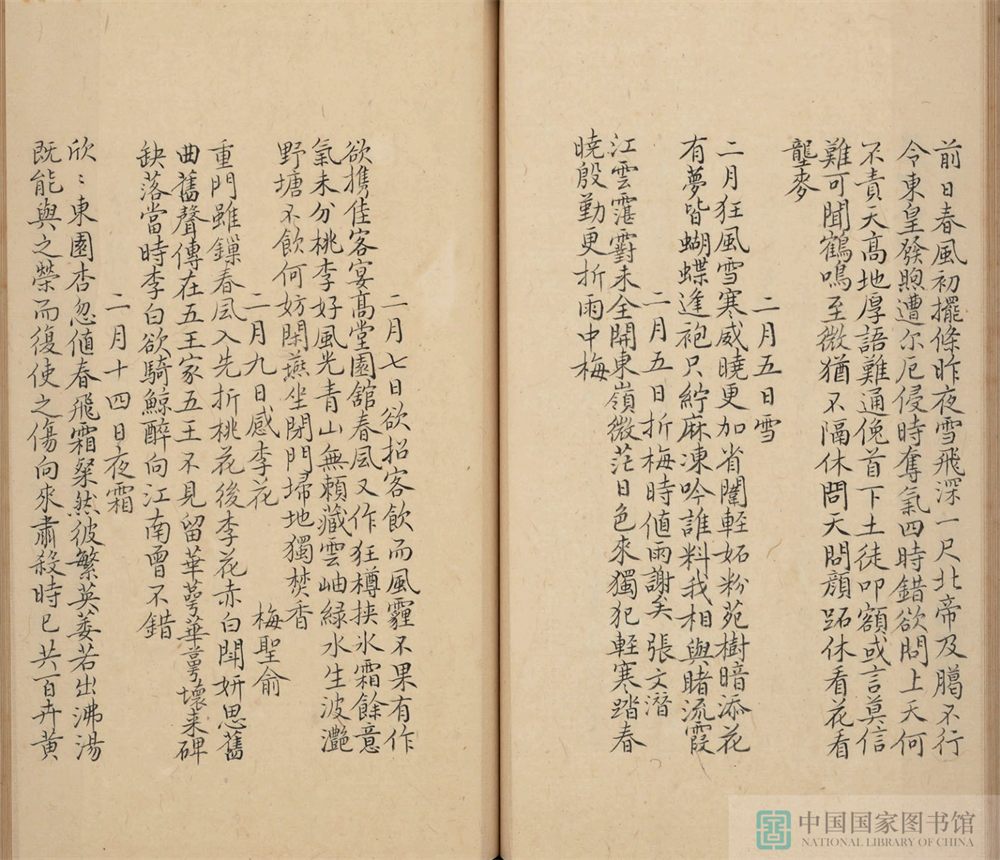 前日春風初擺條昨夜雪飛深一尺北帝及臈不行
令東皇發煦遭尔厄侵時奪氣四時錯欲問上天何
不責天高地厚語難通俛首下土徒叩額或言莫信
難可聞鶴鳴至微猶不隔休問天問顏跖休看花看
壟麥
二月五日雪
二月狂風雪寒威曉更加省闈輕妬粉苑樹暗添花
有夢皆蝴蝶逢袍只紵麻凍吟誰料我相與賭流霞
二月五日折梅時値雨謝夫 張文潛
江雲霮䨴未全開東嶺微茫日色來獨犯輕寒踏春
曉殷勤更折雨中梅
二月七日欲招客飲而風霾不果有作
欲携佳客宴髙堂園舘春風又作狂樽挟氷霜餘意
氣未分桃李好風光青山無頼藏雲岫緑水生波灔
野塘不飲何妨閑燕坐閉門埽地獨焚香
二月九日感李花 梅聖俞
重門雖鏁春風入先折桃花後李花赤白鬬妍思舊
曲舊聲傳在五王家五王不見留華萼華萼壞来碑
缺落當時李白欲騎鯨醉向江南曽不錯
二月十四日夜霜
欣〻東園杏忽値春飛霜粲然彼繁英萎若出沸湯
既能與之榮而復使之傷向來肅殺時已共百卉黄
中国国家图书馆
NATIONAL LIBRARY OF CHINA